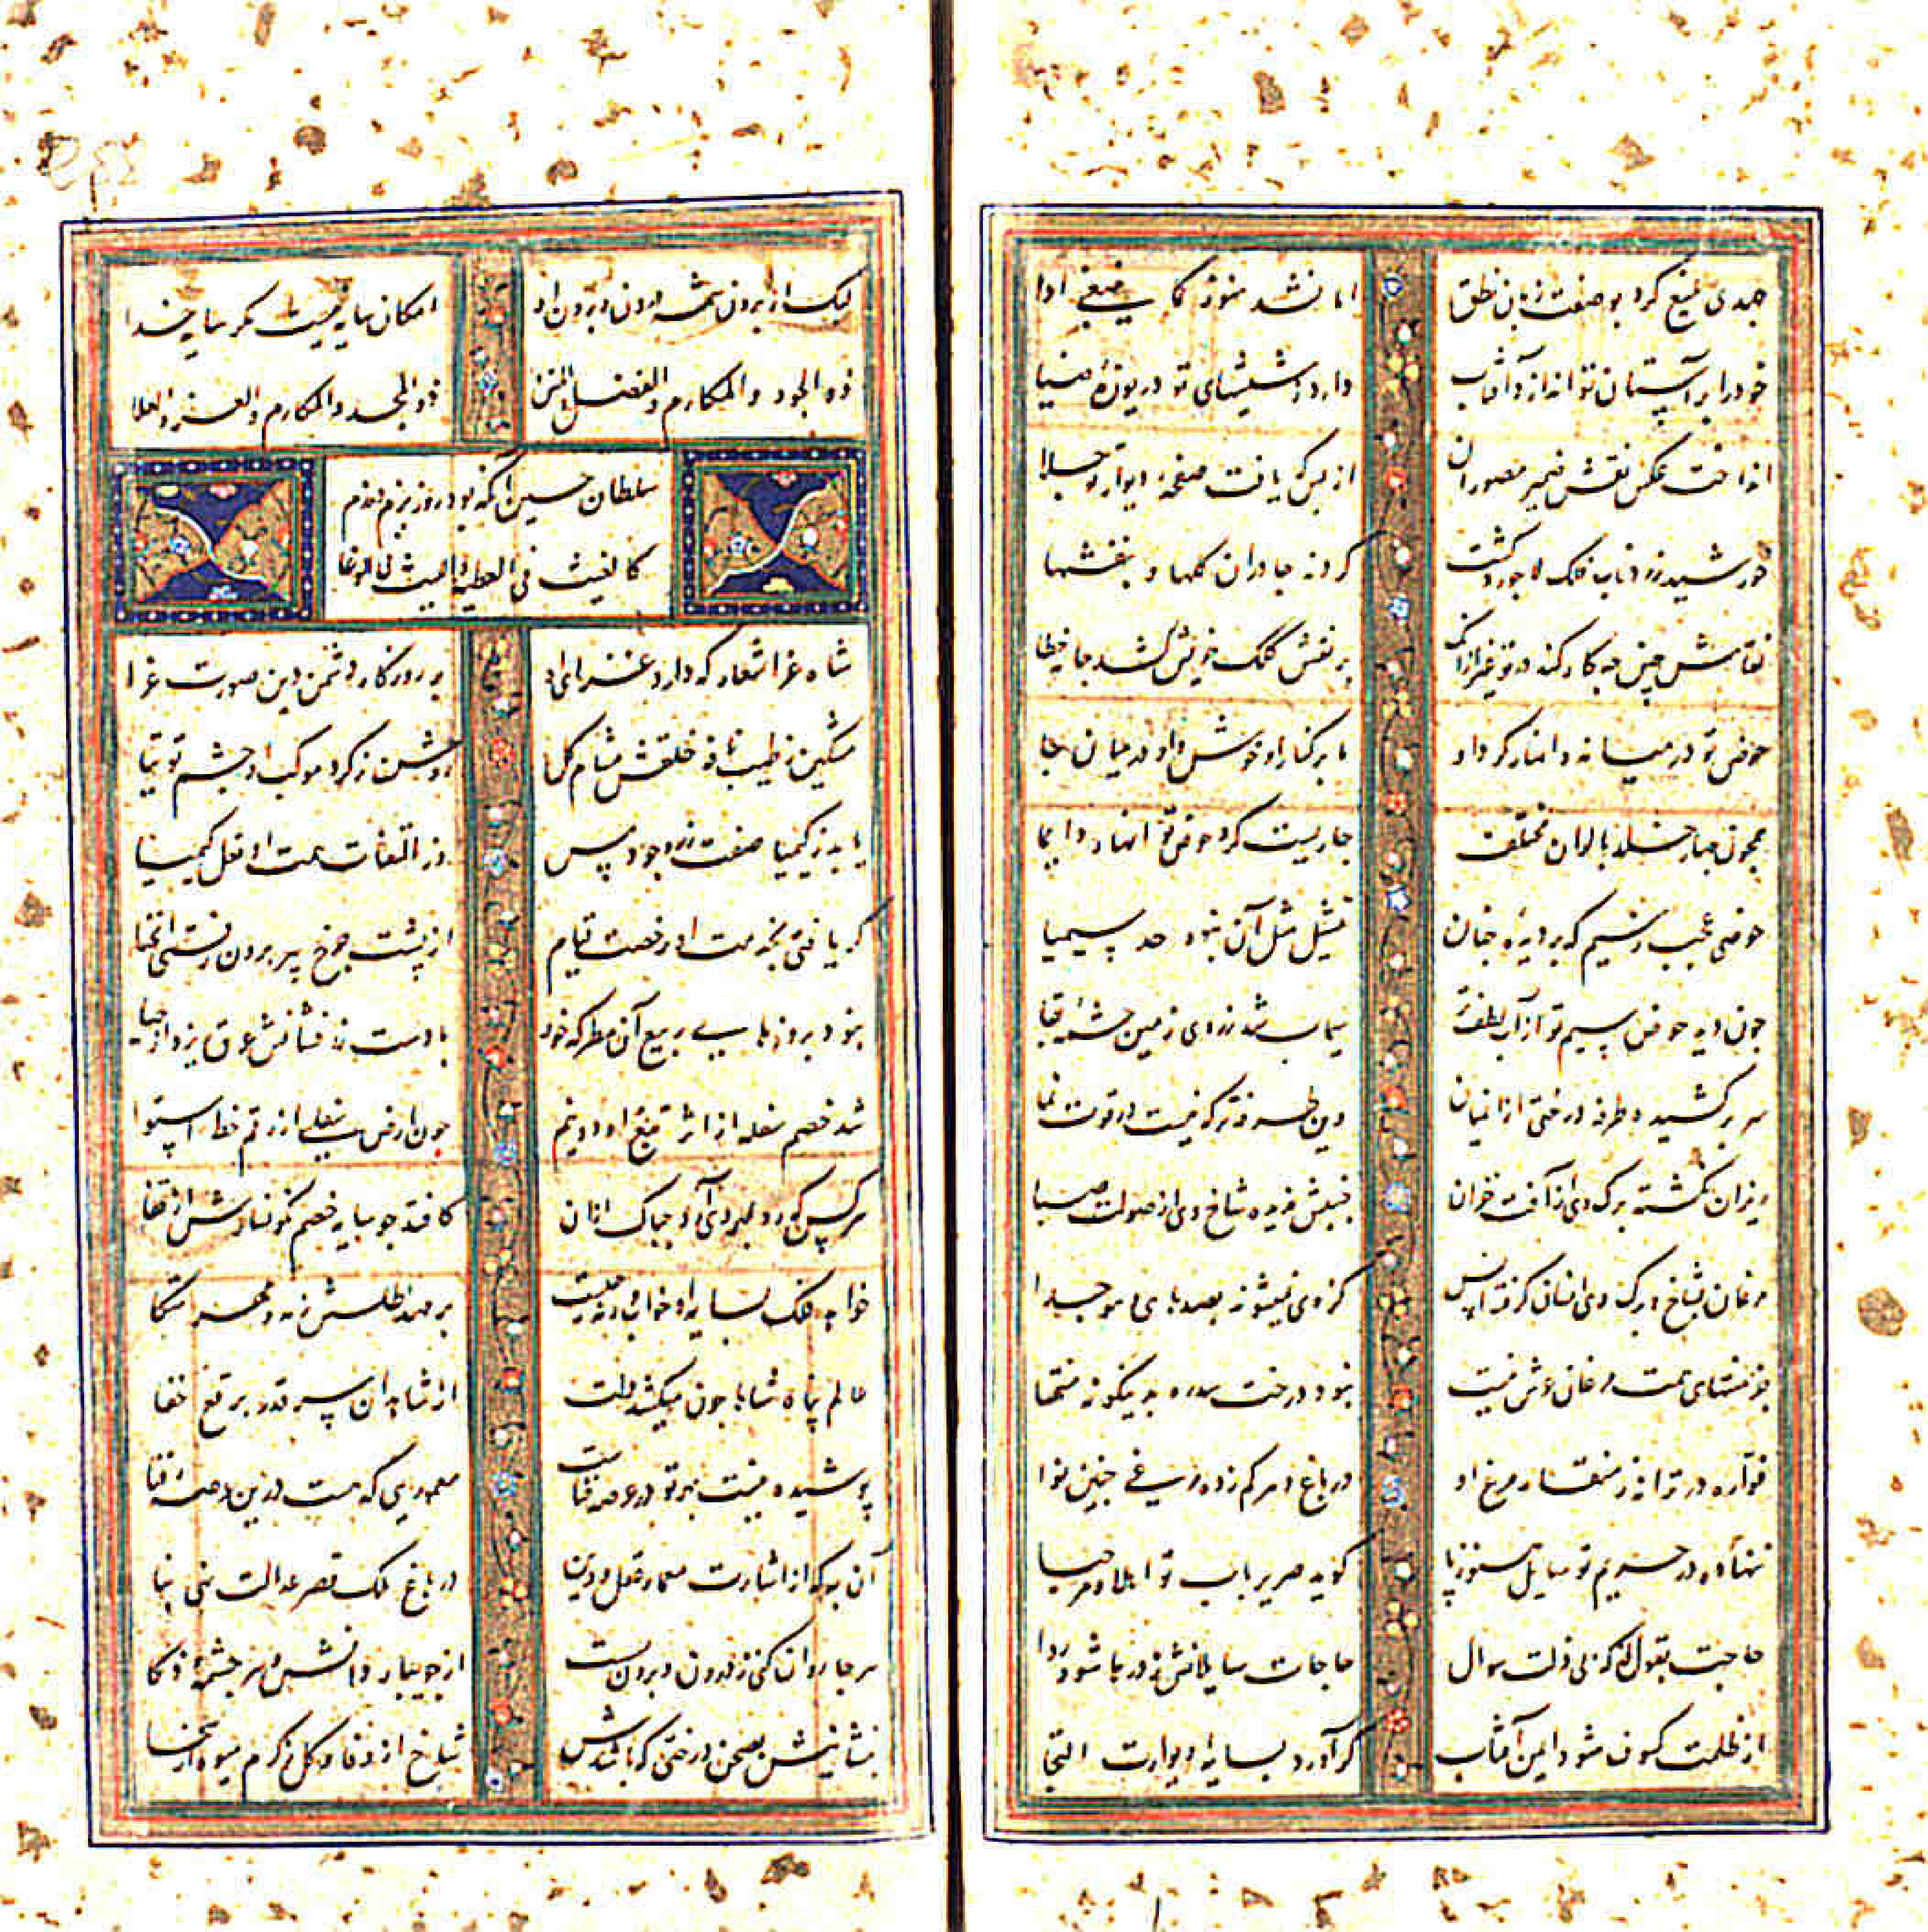 جهدی بلیغ کرد بوصفت زبان خلق
اما نشد هنوز کما ینبغی ادا
خود را بر آستان تو اندازد آفتاب
دارد ز شیشهای تو دریوزهٔ ضیا
انداخت عکس نقش ضمیر مصوران
از بس که یافت صفحه دیوار تو جلا
خورشید زرد ناب فلک لاجورد گشت
کردند جا دران گلها و بنفشها
نقاش چین چه کار کند در تو غیر ازانک
بر نقش کلک خویش کشد جا خطا
حوض تو در میانه و انهار گرد او
ما بر کنار او خوش و او در میان جا
همچون چهار خلد بالوان مختلف
جاریست گرد حوض تو انهار دایما
حوضی عجب ز سیم که بر دیده جهان
تمثیل مثل آن نبود حد سیمیا
چون دید حوض سیم تو از آب لطف
سیماب شد ز روی زمین چشمه بقا
سر بر کشیده طرفه درختی ازان میان
وین طرفه تر که نیست درو قوت نما
ریزان نگشته برگ وی از آفت خزان
جنبش ندیده شاخ وی از صولت صبا
مرغان بشاخ و برگ وی انسان گرفته انس
کز وی نمیشوند بصد های و هو جدا
جز منتهای همت مرغان عرش نیست
نبود درخت سدره بدینگونه منتها
فواره در ترانه ز منقار مرغ او
در باغ دهر کم زده مرغی چنین نوا
ننهاده در حریم تو سایل هنوز پا
گوید صریر باب تو اهلا و مرحبا
حاجت بقول لا کنی ذلت سوال
حاجات سایلانش ز در با شود روا
از ظلمت کسوف شود ایمن آفتاب
گر آورد بسایه دیوارت التجا
لیک از برون شمسه درون و برون او
امکان سایه نیست مگر سایه خدا
ذو الجود و المکارم و الفضل و المنن
ذو المجد و المکارم و العز و العلا
سلطان حسین آنکه بود روز بزم و رزم
کالغیث فی العطیه و اللیث فی الوغا
شاه غزا شعار که دارد غزای او
بر روزگار دشمن دین صورت عزا
مشکین ز طیب نافه خلقش مشام گل
روشن ز گرد موکب او چشم توتیا
یابد ز کیمیا صفت زر وجود مس
وز التفات همت او فعل کیمیا
گر یافتی بخدمت او رخصت قیام
از پشت چرخ پیر برون رفتی انحنا
نبود بروزهای ربیع آن مطر که خود
با دست زر فشانش عرق ریزد از حیا
شد خصم سفله از اثر تیغ او دو نیم
چون ارض سفلی از رقم خط استوا
هر کس که رو بدو آورد چه باک ازان
کافتد چو سایه خصم نگونسارش از قفا
خواجه فلک بسایه او خواب ورنه چیست
بر مهد اطلسش ز مه و مهر متکا
عالم پناه شاها چون میکشد دلت
از شاهدان سر قدر برقع خفا
پوشیده نیست بر تو در عرصه فنا
معموریی که هست درین عرصه فنا
آن به که از اشارت معمار عقل و دین
در باغ ملک قصر عدالت نهی بنا
هر جا روان کنی ز درون و برون بست
از جویبار دانش و سرچشمه ذکا
بنشانیش بصحن درختی که باشدش
شاخ از وفا و گل ز کرم میوه از سخا